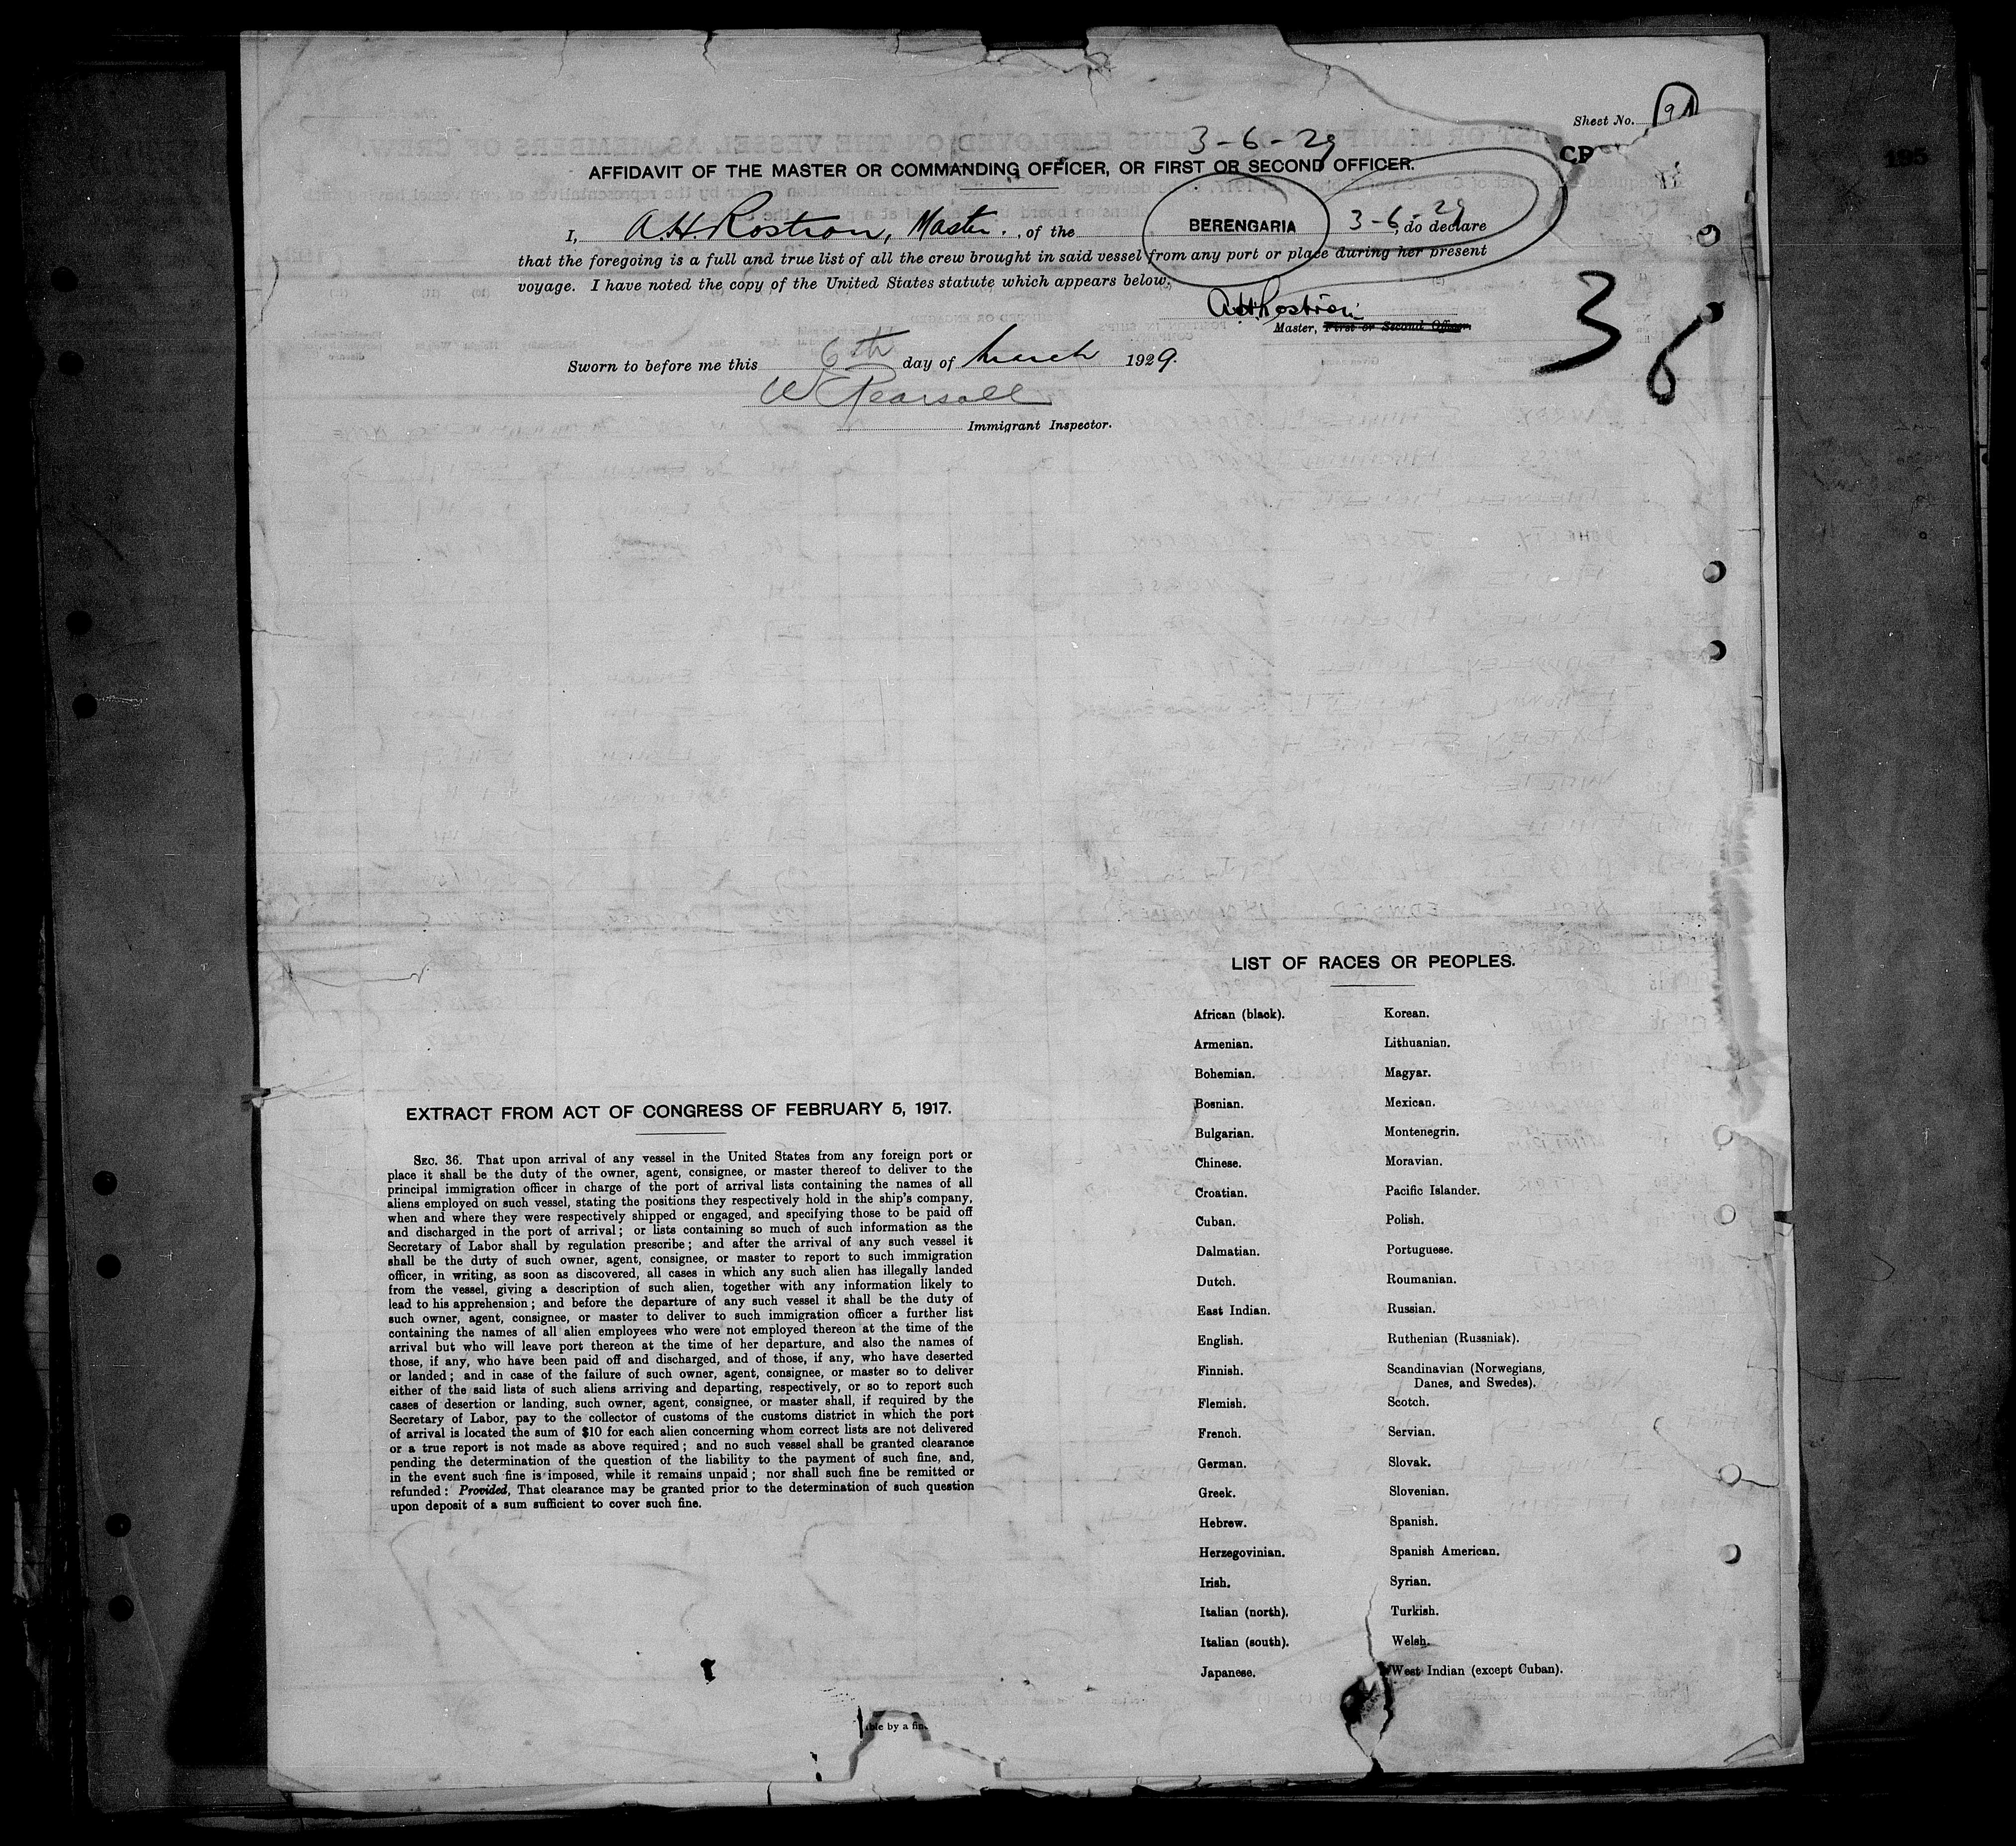 Sheet No. 9
3-6-29
AFFIDAVIT OF THE MASTER OR COMMANDING OFFICER, OR FIRST OR SECOND OFFICER.
195
I, A.H. Rostron, Master., of the BERENGARIA 3-6-29, do declare
that the foregoing is a full and true list of all the crew brought in said vessel from any port or place during her present
voyage. I have noted the copy of the United States statute which appears below.
AHRostron
Master, First or Second Officer.
36
Sworn to before me this 6th day of March 1929.
W Pearsall
Immigrant Inspector.
EXTRACT FROM ACT OF CONGRESS OF FEBRUARY 5, 1917.
SEC. 36. That upon arrival of any vessel in the United States from any foreign port or
place it shall be the duty of the owner, agent, consignee, or master thereof to deliver to the
principal immigration officer in charge of the port of arrival lists containing the names of all
aliens employed on such vessel, stating the positions they respectively hold in the ship's company,
when and where they were respectively shipped or engaged, and specifying those to be paid off
and discharged in the port of arrival; or lists containing so much of such information as the
Secretary of Labor shall by regulation prescribe; and after the arrival of any such vessel it
shall be the duty of such owner, agent, consignee, or master to report to such immigration
officer, in writing, as soon as discovered, all cases in which any such alien has illegally landed
from the vessel, giving a description of such alien, together with any information likely to
lead to his apprehension; and before the departure of any such vessel it shall be the duty of
such owner, agent, consignee, or master to deliver to such immigration officer a further list
containing the names of all alien employees who were not employed thereon at the time of the
arrival but who will leave port thereon at the time of her departure, and also the names of
those, if any, who have been paid off and discharged, and of those, if any, who have deserted
or landed; and in case of the failure of such owner, agent, consignee, or master so to deliver
either of the said lists of such aliens arriving and departing, respectively, or so to report such
cases of desertion or landing, such owner, agent, consignee, or master shall, if required by the
Secretary of Labor, pay to the collector of customs of the customs district in which the port
of arrival is located the sum of $10 for each alien concerning whom correct lists are not delivered
or a true report is not made as above required; and no such vessel shall be granted clearance
pending the determination of the question of the liability to the payment of such fine, and,
in the event such fine is imposed, while it remains unpaid; nor shall such fine be remitted or
refunded: Provided, That clearance may be granted prior to the determination of such question
upon deposit of a sum sufficient to cover such fine.
LIST OF RACES OR PEOPLES.
African (black).
Armenian.
Bohemian.
Bosnian.
Bulgarian.
Chinese.
Croatian.
Cuban.
Dalmatian.
Dutch.
East Indian.
English.
Finnish.
Flemish.
French.
German.
Greek.
Hebrew.
Herzegovinian.
Irish.
Italian (north).
Italian (south).
Japanese.
Korean.
Lithuanian.
Magyar.
Mexican.
Montenegrin.
Moravian.
Pacific Islander.
Polish.
Portuguese.
Roumanian.
Russian.
Ruthenian (Russniak).
Scandinavian (Norwegians,
Danes, and Swedes).
Scotch.
Servian.
Slovak.
Slovenian.
Spanish.
Spanish American.
Syrian.
Turkish.
Welsh.
West Indian (except Cuban).
ble by a fin